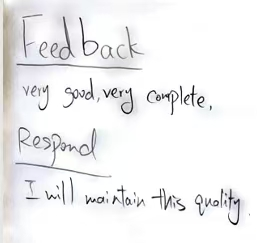 Feedback
very good, very complete,
Respond
I will maintain this quality.